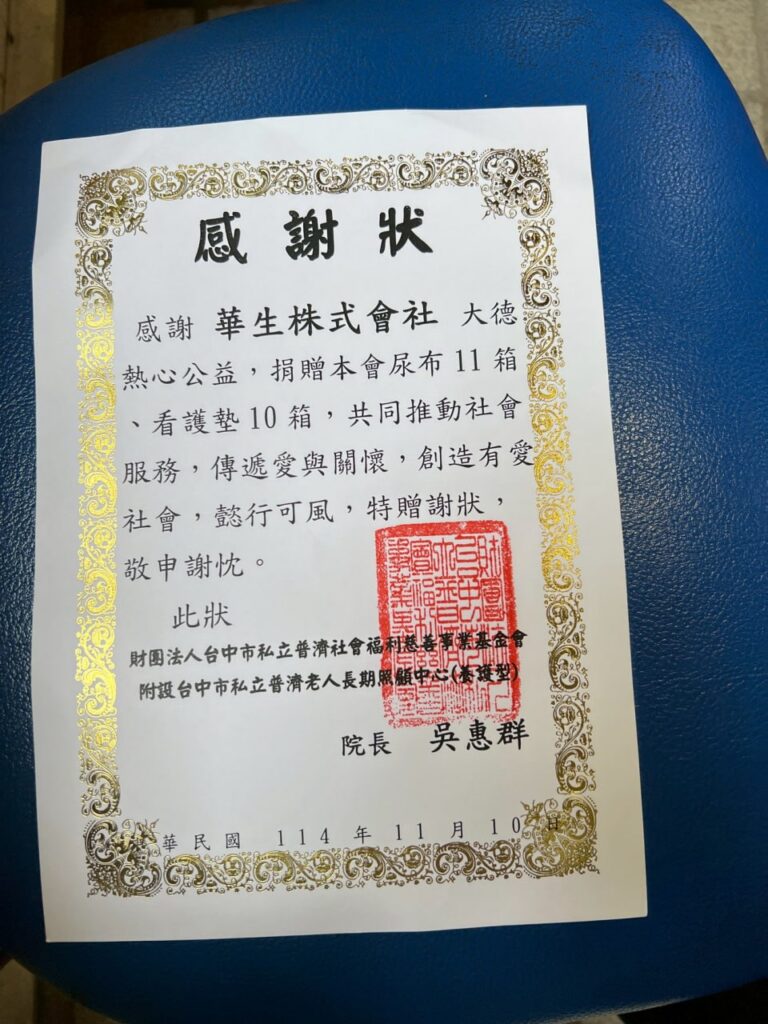 感謝狀
感謝 華生株式會社 大德
熱心公益，捐贈本會尿布11箱
、看護墊10箱，共同推動社會
服務，傳遞愛與關懷，創造有愛
社會，懿行可風，特贈謝狀，
敬申謝忱。
此狀
財團法人台中市私立普濟社會福利慈善事業基金會
附設台中市私立普濟老人長期照顧中心(養護型)
院長 吳惠群
華民國 114 年 11 月 10 日